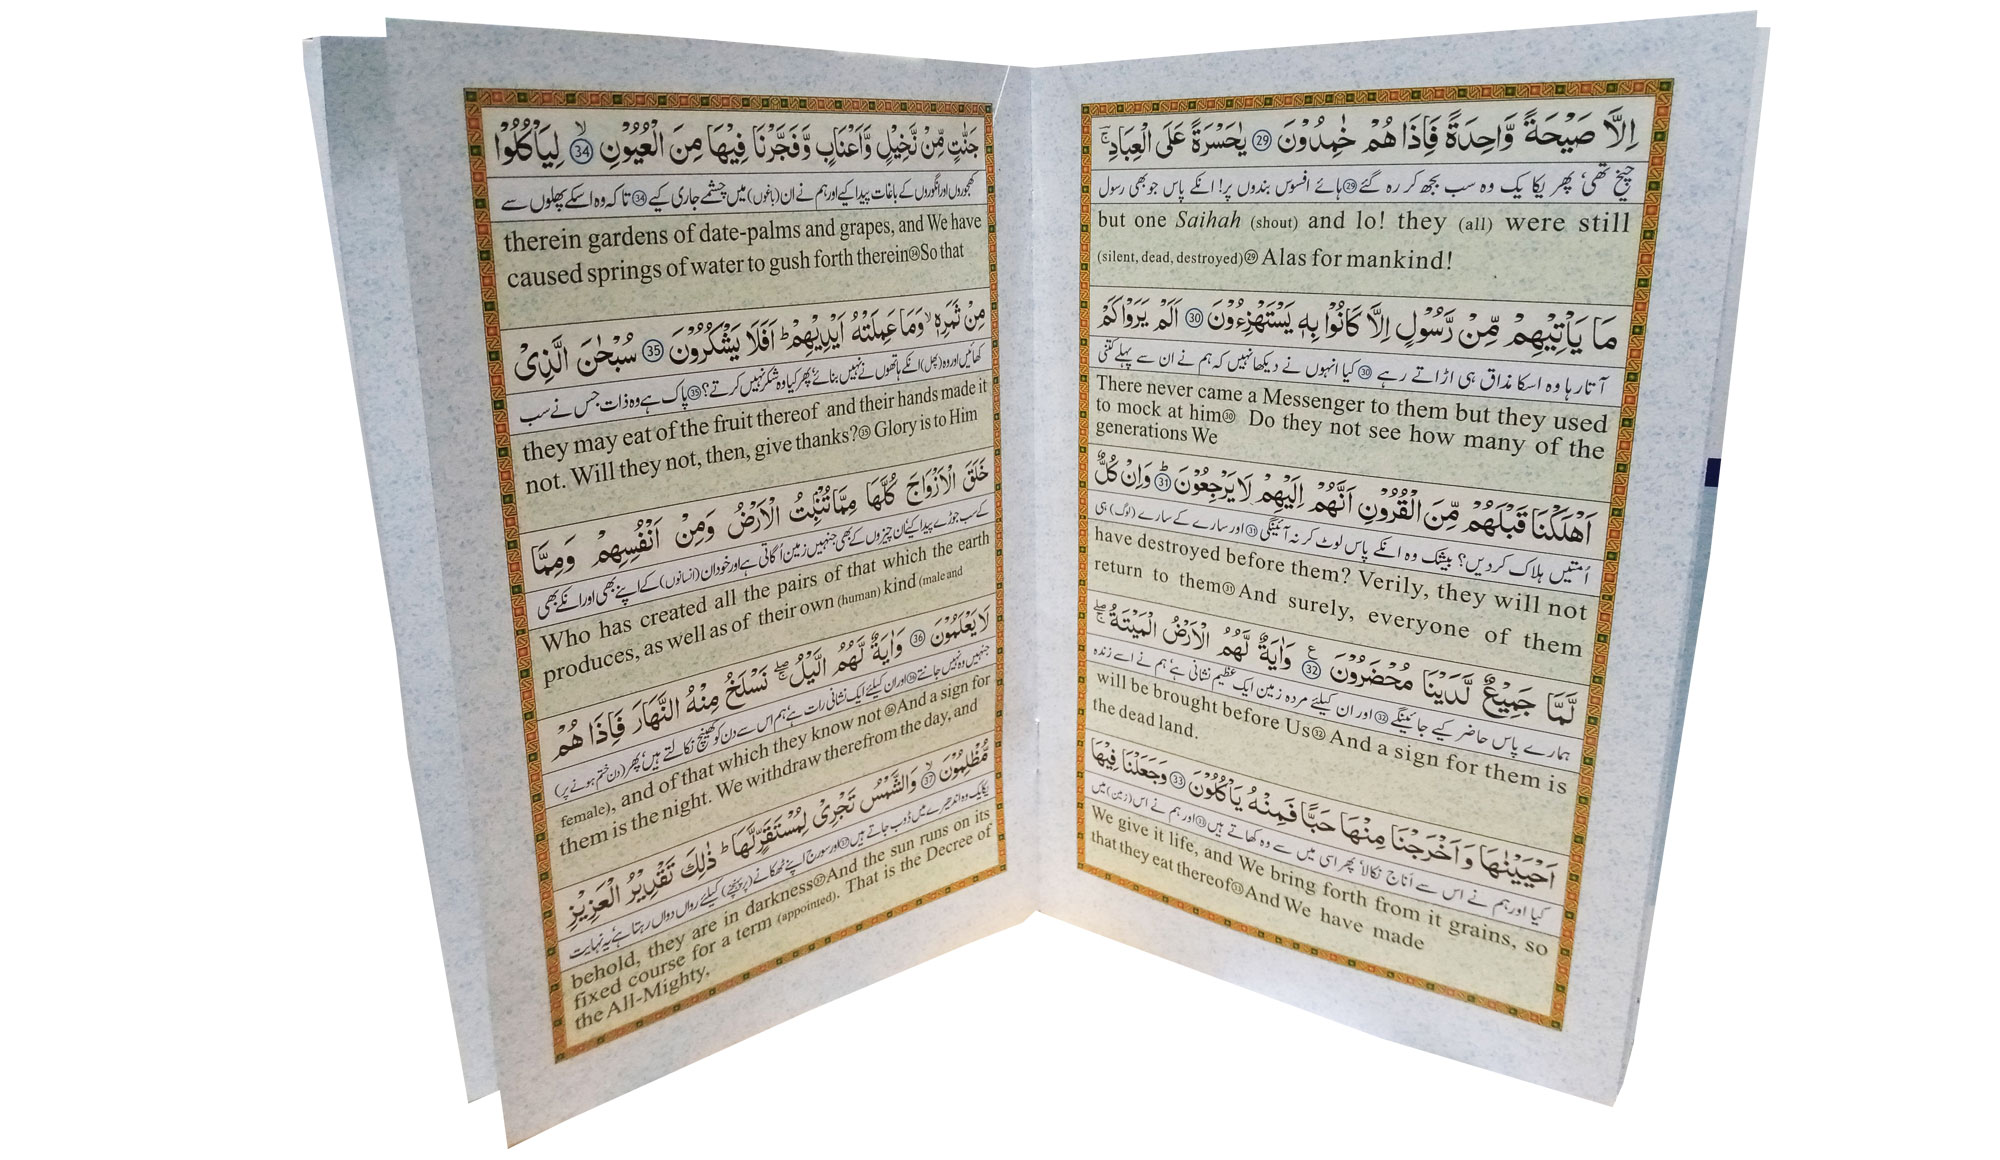 اِلَّا صَيْحَةً وَّاحِدَةً فَاِذَا هُمْ خٰمِدُوْنَ 29 يٰحَسْرَةً عَلَى الْعِبَادِ ۚ
چیخ تھی، پھر یکا یک وہ سب بجھ کر رہ گئے 29 ہائے افسوس بندوں پر! انکے پاس جو بھی رسول
but one Saihah (shout) and lo! they (all) were still
(silent, dead, destroyed) 29 Alas for mankind!
مَا يَاْتِيْهِمْ مِّنْ رَّسُوْلٍ اِلَّا كَانُوْا بِهٖ يَسْتَهْزِءُوْنَ 30 اَلَمْ يَرَوْا كَمْ
آتا رہا وہ اسکا مذاق ہی اڑاتے رہے 30 کیا انہوں نے دیکھا نہیں کہ ہم نے ان سے پہلے کتنی
There never came a Messenger to them but they used
to mock at him 30 Do they not see how many of the
generations We
اَهْلَكْنَا قَبْلَهُمْ مِّنَ الْقُرُوْنِ اَنَّهُمْ اِلَيْهِمْ لَا يَرْجِعُوْنَ ؕ 31 وَاِنْ كُلٌّ
اُمتیں ہلاک کردیں؟ بیشک وہ انکے پاس لوٹ کر نہ آئینگی 31 اور سارے کے سارے (لوگ) ہی
have destroyed before them? Verily, they will not
return to them 31 And surely, everyone of them
لَّمَّا جَمِيْعٌ لَّدَيْنَا مُحْضَرُوْنَ ۠ 32 وَاٰيَةٌ لَّهُمُ الْاَرْضُ الْمَيْتَةُ ۖۚ
ہمارے پاس حاضر کیے جائینگے 32 اور ان کیلئے مردہ زمین ایک عظیم نشانی ہے، ہم نے اسے زندہ
will be brought before Us 32 And a sign for them is
the dead land.
اَحْيَيْنٰهَا وَاَخْرَجْنَا مِنْهَا حَبًّا فَمِنْهُ يَاْكُلُوْنَ 33 وَجَعَلْنَا فِيْهَا
کیا اور ہم نے اس سے اَناج نکالا، پھر اسی میں سے وہ کھاتے ہیں 33 اور ہم نے اس (زمین) میں
We give it life, and We bring forth from it grains, so
that they eat thereof 33 And We have made
جَنّٰتٍ مِّنْ نَّخِيْلٍ وَّاَعْنَابٍ وَّفَجَّرْنَا فِيْهَا مِنَ الْعُيُوْنِ ۙ 34 لِيَاْكُلُوْا
کھجوروں اور انگوروں کے باغات پیدا کیے اور ہم نے ان (باغوں) میں چشمے جاری کیے 34 تا کہ وہ اسکے پھلوں سے
therein gardens of date-palms and grapes, and We have
caused springs of water to gush forth therein 34 So that
مِنْ ثَمَرِهٖ ۙ وَمَا عَمِلَتْهُ اَيْدِيْهِمْ ؕ اَفَلَا يَشْكُرُوْنَ 35 سُبْحٰنَ الَّذِيْ
کھائیں اور وہ (پھل) انکے ہاتھوں نے نہیں بنائے، پھر کیا وہ شکر نہیں کرتے؟ 35 پاک ہے وہ ذات جس نے سب
they may eat of the fruit thereof and their hands made it
not. Will they not, then, give thanks? 35 Glory is to Him
خَلَقَ الْاَزْوَاجَ كُلَّهَا مِمَّا تُنْۢبِتُ الْاَرْضُ وَمِنْ اَنْفُسِهِمْ وَمِمَّا
کے سب جوڑے پیدا کیے، ان چیزوں کے بھی جنہیں زمین اُگاتی ہے اور خود ان (انسانوں) کے اپنے بھی اور انکے بھی
Who has created all the pairs of that which the earth
produces, as well as of their own (human) kind (male and
لَا يَعْلَمُوْنَ 36 وَاٰيَةٌ لَّهُمُ الَّيْلُ ۖۚ نَسْلَخُ مِنْهُ النَّهَارَ فَاِذَا هُمْ
جنہیں وہ نہیں جانتے 36 اور ان کیلئے ایک نشانی رات ہے، ہم اس سے دن کو کھینچ نکالتے ہیں، پھر (دن ختم ہونے پر)
female), and of that which they know not 36 And a sign for
them is the night. We withdraw therefrom the day, and
مُّظْلِمُوْنَ ۙ 37 وَالشَّمْسُ تَجْرِيْ لِمُسْتَقَرٍّ لَّهَا ؕ ذٰلِكَ تَقْدِيْرُ الْعَزِيْزِ
یکایک وہ اندھیرے میں ڈوب جاتے ہیں 37 اور سورج اپنے ٹھکانے (پر پہنچنے) کیلئے رواں دواں رہتا ہے، یہ نہایت
behold, they are in darkness 37 And the sun runs on its
fixed course for a term (appointed). That is the Decree of
the All-Mighty,